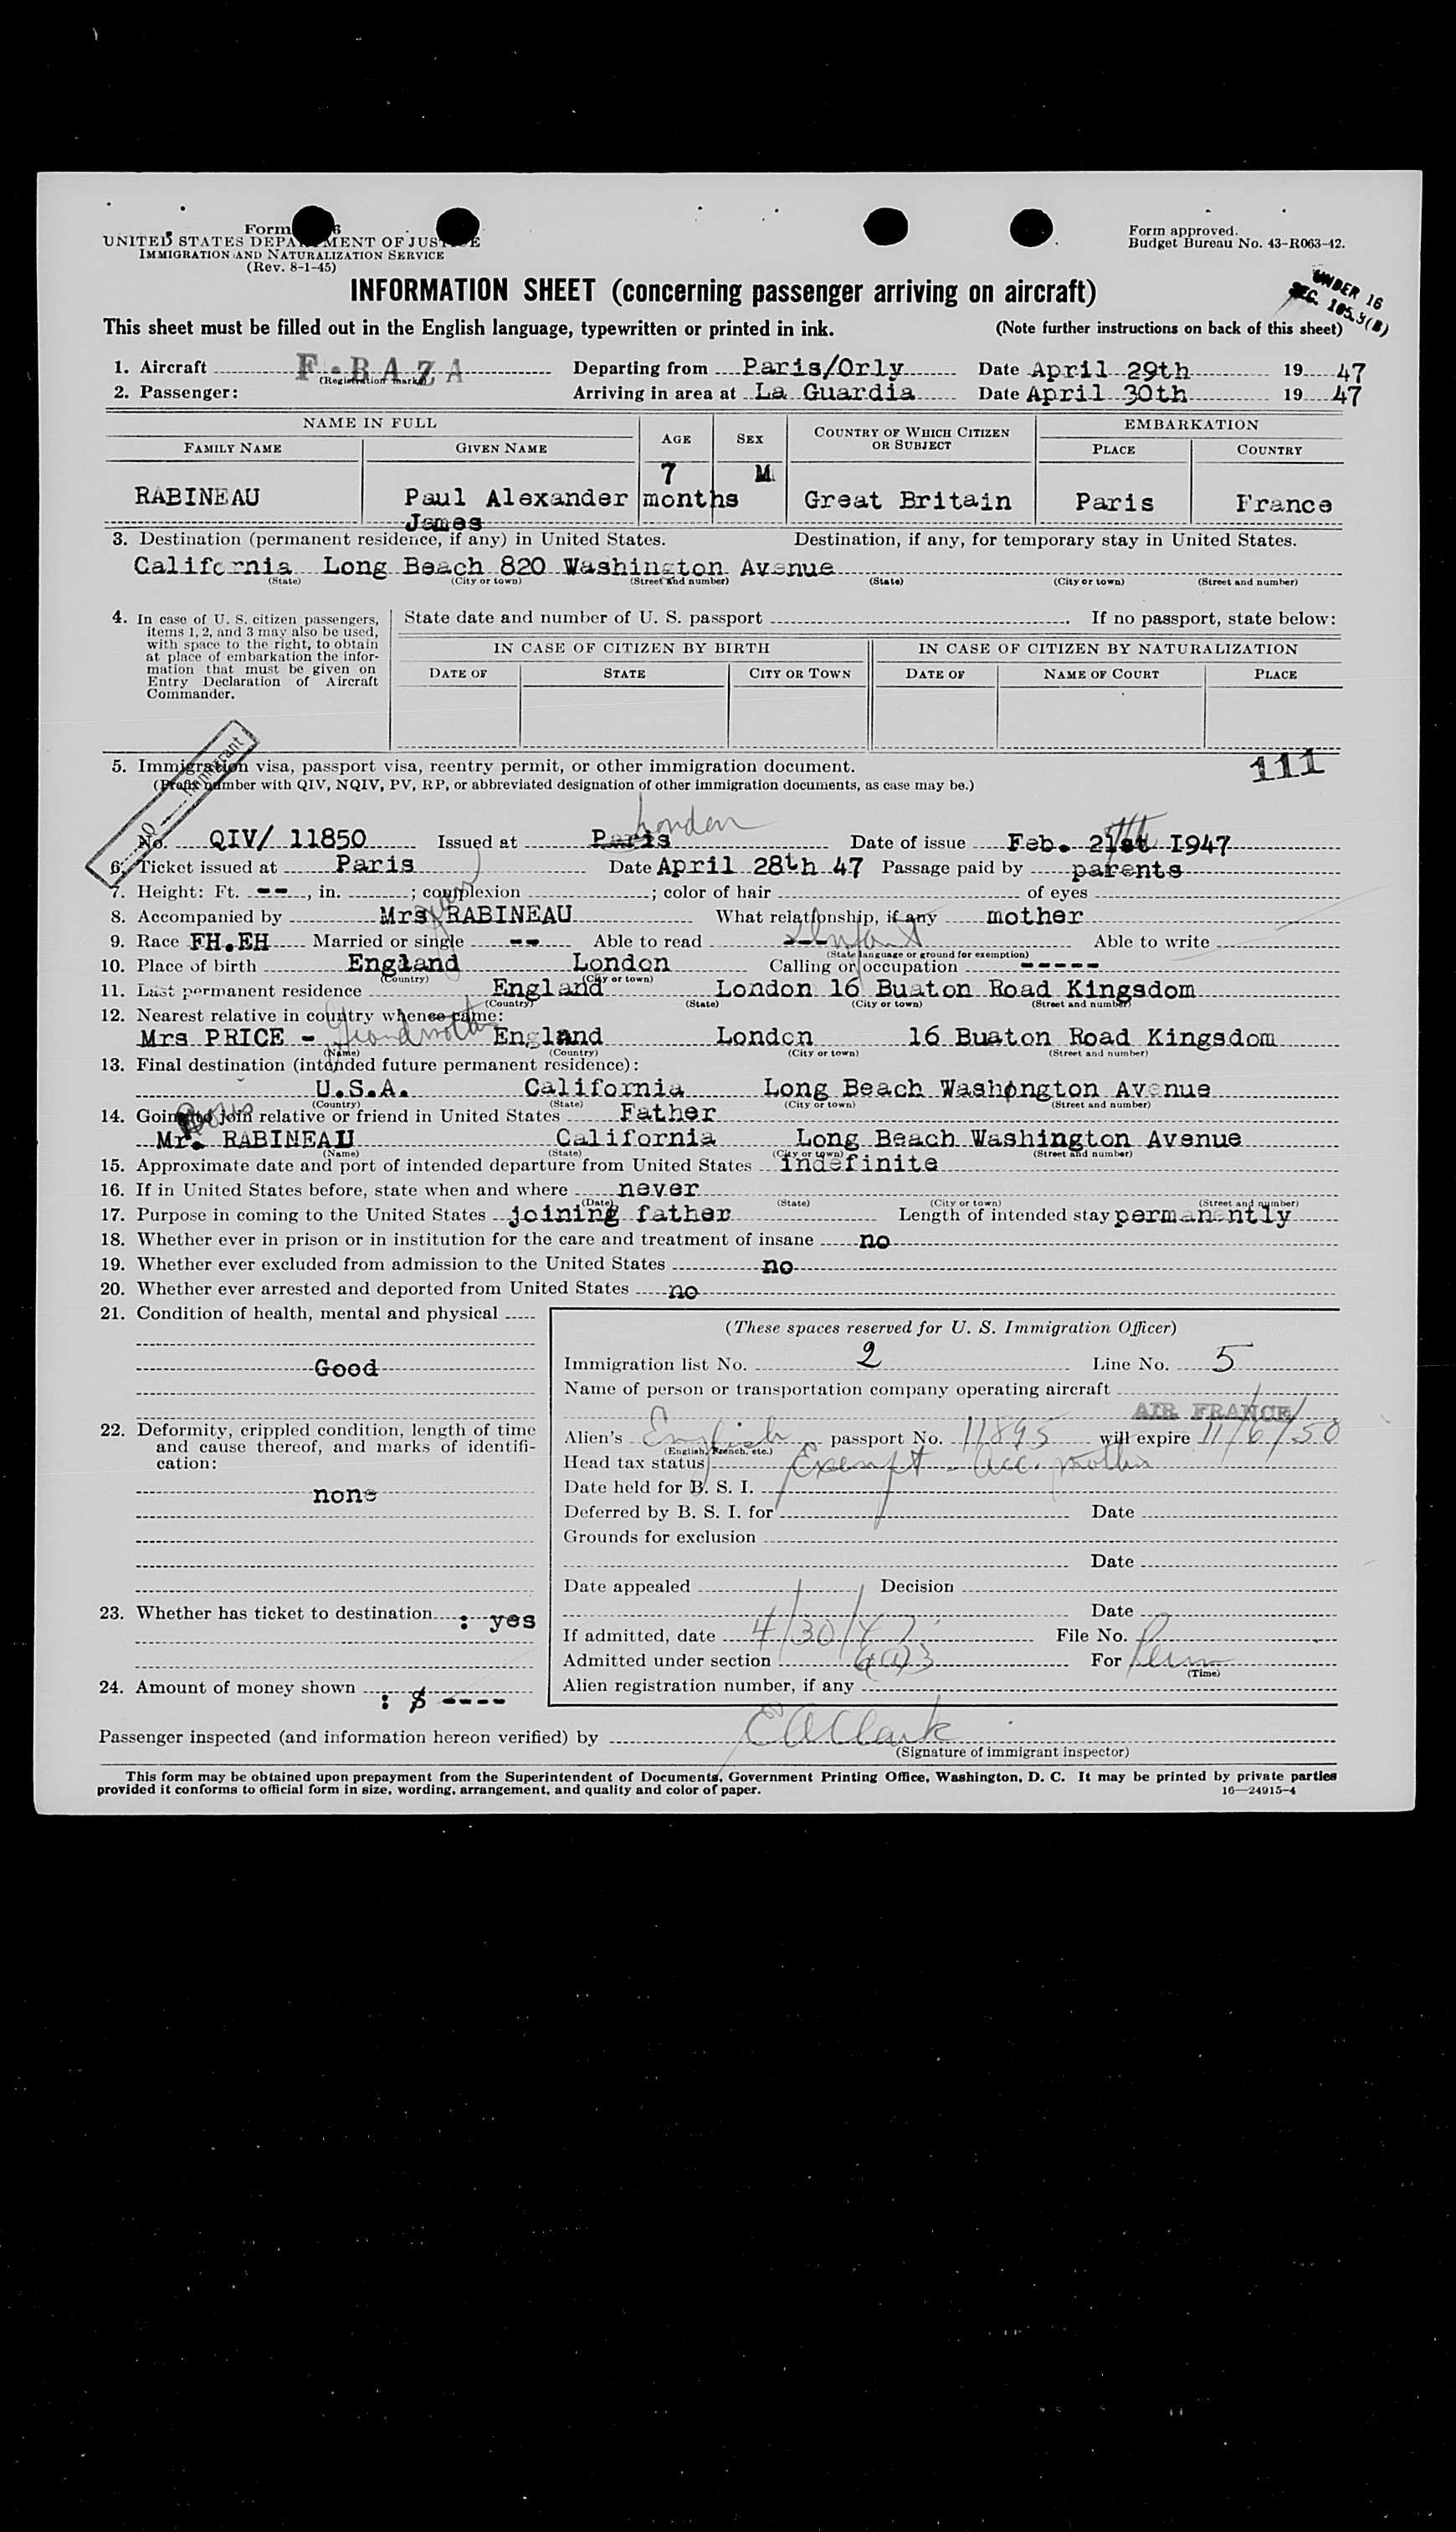 Form
UNITED STATES DEPARTMENT OF JUSTICE
IMMIGRATION AND NATURALIZATION SERVICE
(Rev. 8-1-45)
Form approved.
Budget Bureau No. 43-R063-42.
INFORMATION SHEET (concerning passenger arriving on aircraft)
UNDER 16
SEC. 105.3(B)
This sheet must be filled out in the English language, typewritten or printed in ink. (Note further instructions on back of this sheet)
1. Aircraft F-BAZA Departing from Paris/Orly Date April 29th 19 47
(Registration marks)
2. Passenger: Arriving in area at La Guardia Date April 30th 19 47
NAME IN FULL AGE SEX COUNTRY OF WHICH CITIZEN OR SUBJECT EMBARKATION
FAMILY NAME GIVEN NAME PLACE COUNTRY
7 M
RABINEAU Paul Alexander months Great Britain Paris France
James
3. Destination (permanent residence, if any) in United States. Destination, if any, for temporary stay in United States.
California Long Beach 820 Washington Avenue
(State) (City or town) (Street and number) (State) (City or town) (Street and number)
4. In case of U. S. citizen passengers, items 1, 2, and 3 may also be used, with space to the right, to obtain at place of embarkation the information that must be given on Entry Declaration of Aircraft Commander.
State date and number of U. S. passport If no passport, state below:
IN CASE OF CITIZEN BY BIRTH IN CASE OF CITIZEN BY NATURALIZATION
DATE OF STATE CITY OR TOWN DATE OF NAME OF COURT PLACE
5. Immigration visa, passport visa, reentry permit, or other immigration document. 111
(Prefix number with QIV, NQIV, PV, RP, or abbreviated designation of other immigration documents, as case may be.)
Immigrant
London
No. QIV/ 11850 Issued at Paris Date of issue Feb. 21st 1947
6. Ticket issued at Paris Date April 28th 47 Passage paid by parents
7. Height: Ft. --, in. ; complexion ; color of hair of eyes
8. Accompanied by Mrs RABINEAU What relationship, if any mother
9. Race FH.EH Married or single -- Able to read --- Infant Able to write
(State language or ground for exemption)
10. Place of birth England London Calling or occupation -----
(Country) (City or town)
11. Last permanent residence England London 16 Buaton Road Kingsdom
(Country) (State) (City or town) (Street and number)
12. Nearest relative in country whence came:
Mrs PRICE - Grandmother England London 16 Buaton Road Kingsdom
(Name) (Country) (City or town) (Street and number)
13. Final destination (intended future permanent residence):
U.S.A. California Long Beach Washington Avenue
(Country) (State) (City or town) (Street and number)
14. Going to join relative or friend in United States Father
Mr. RABINEAU California Long Beach Washington Avenue
(Name) (State) (City or town) (Street and number)
15. Approximate date and port of intended departure from United States indefinite
16. If in United States before, state when and where never
(Date) (State) (City or town) (Street and number)
17. Purpose in coming to the United States joining father Length of intended stay permanently
18. Whether ever in prison or in institution for the care and treatment of insane no
19. Whether ever excluded from admission to the United States no
20. Whether ever arrested and deported from United States no
21. Condition of health, mental and physical
Good
22. Deformity, crippled condition, length of time and cause thereof, and marks of identification:
none
23. Whether has ticket to destination : yes
24. Amount of money shown : $ ----
(These spaces reserved for U. S. Immigration Officer)
Immigration list No. 2 Line No. 5
Name of person or transportation company operating aircraft
AIR FRANCE
Alien's English passport No. 11895 will expire 11/6/50
(English, French, etc.)
Head tax status Exempt - acc. mother
Date held for B. S. I.
Deferred by B. S. I. for Date
Grounds for exclusion
Date
Date appealed Decision
Date
If admitted, date 4/30/47 File No.
Admitted under section 6(a)3 For Perm
(Time)
Alien registration number, if any
Passenger inspected (and information hereon verified) by E A Clark
(Signature of immigrant inspector)
This form may be obtained upon prepayment from the Superintendent of Documents, Government Printing Office, Washington, D. C. It may be printed by private parties
provided it conforms to official form in size, wording, arrangement, and quality and color of paper. 16—24915-4